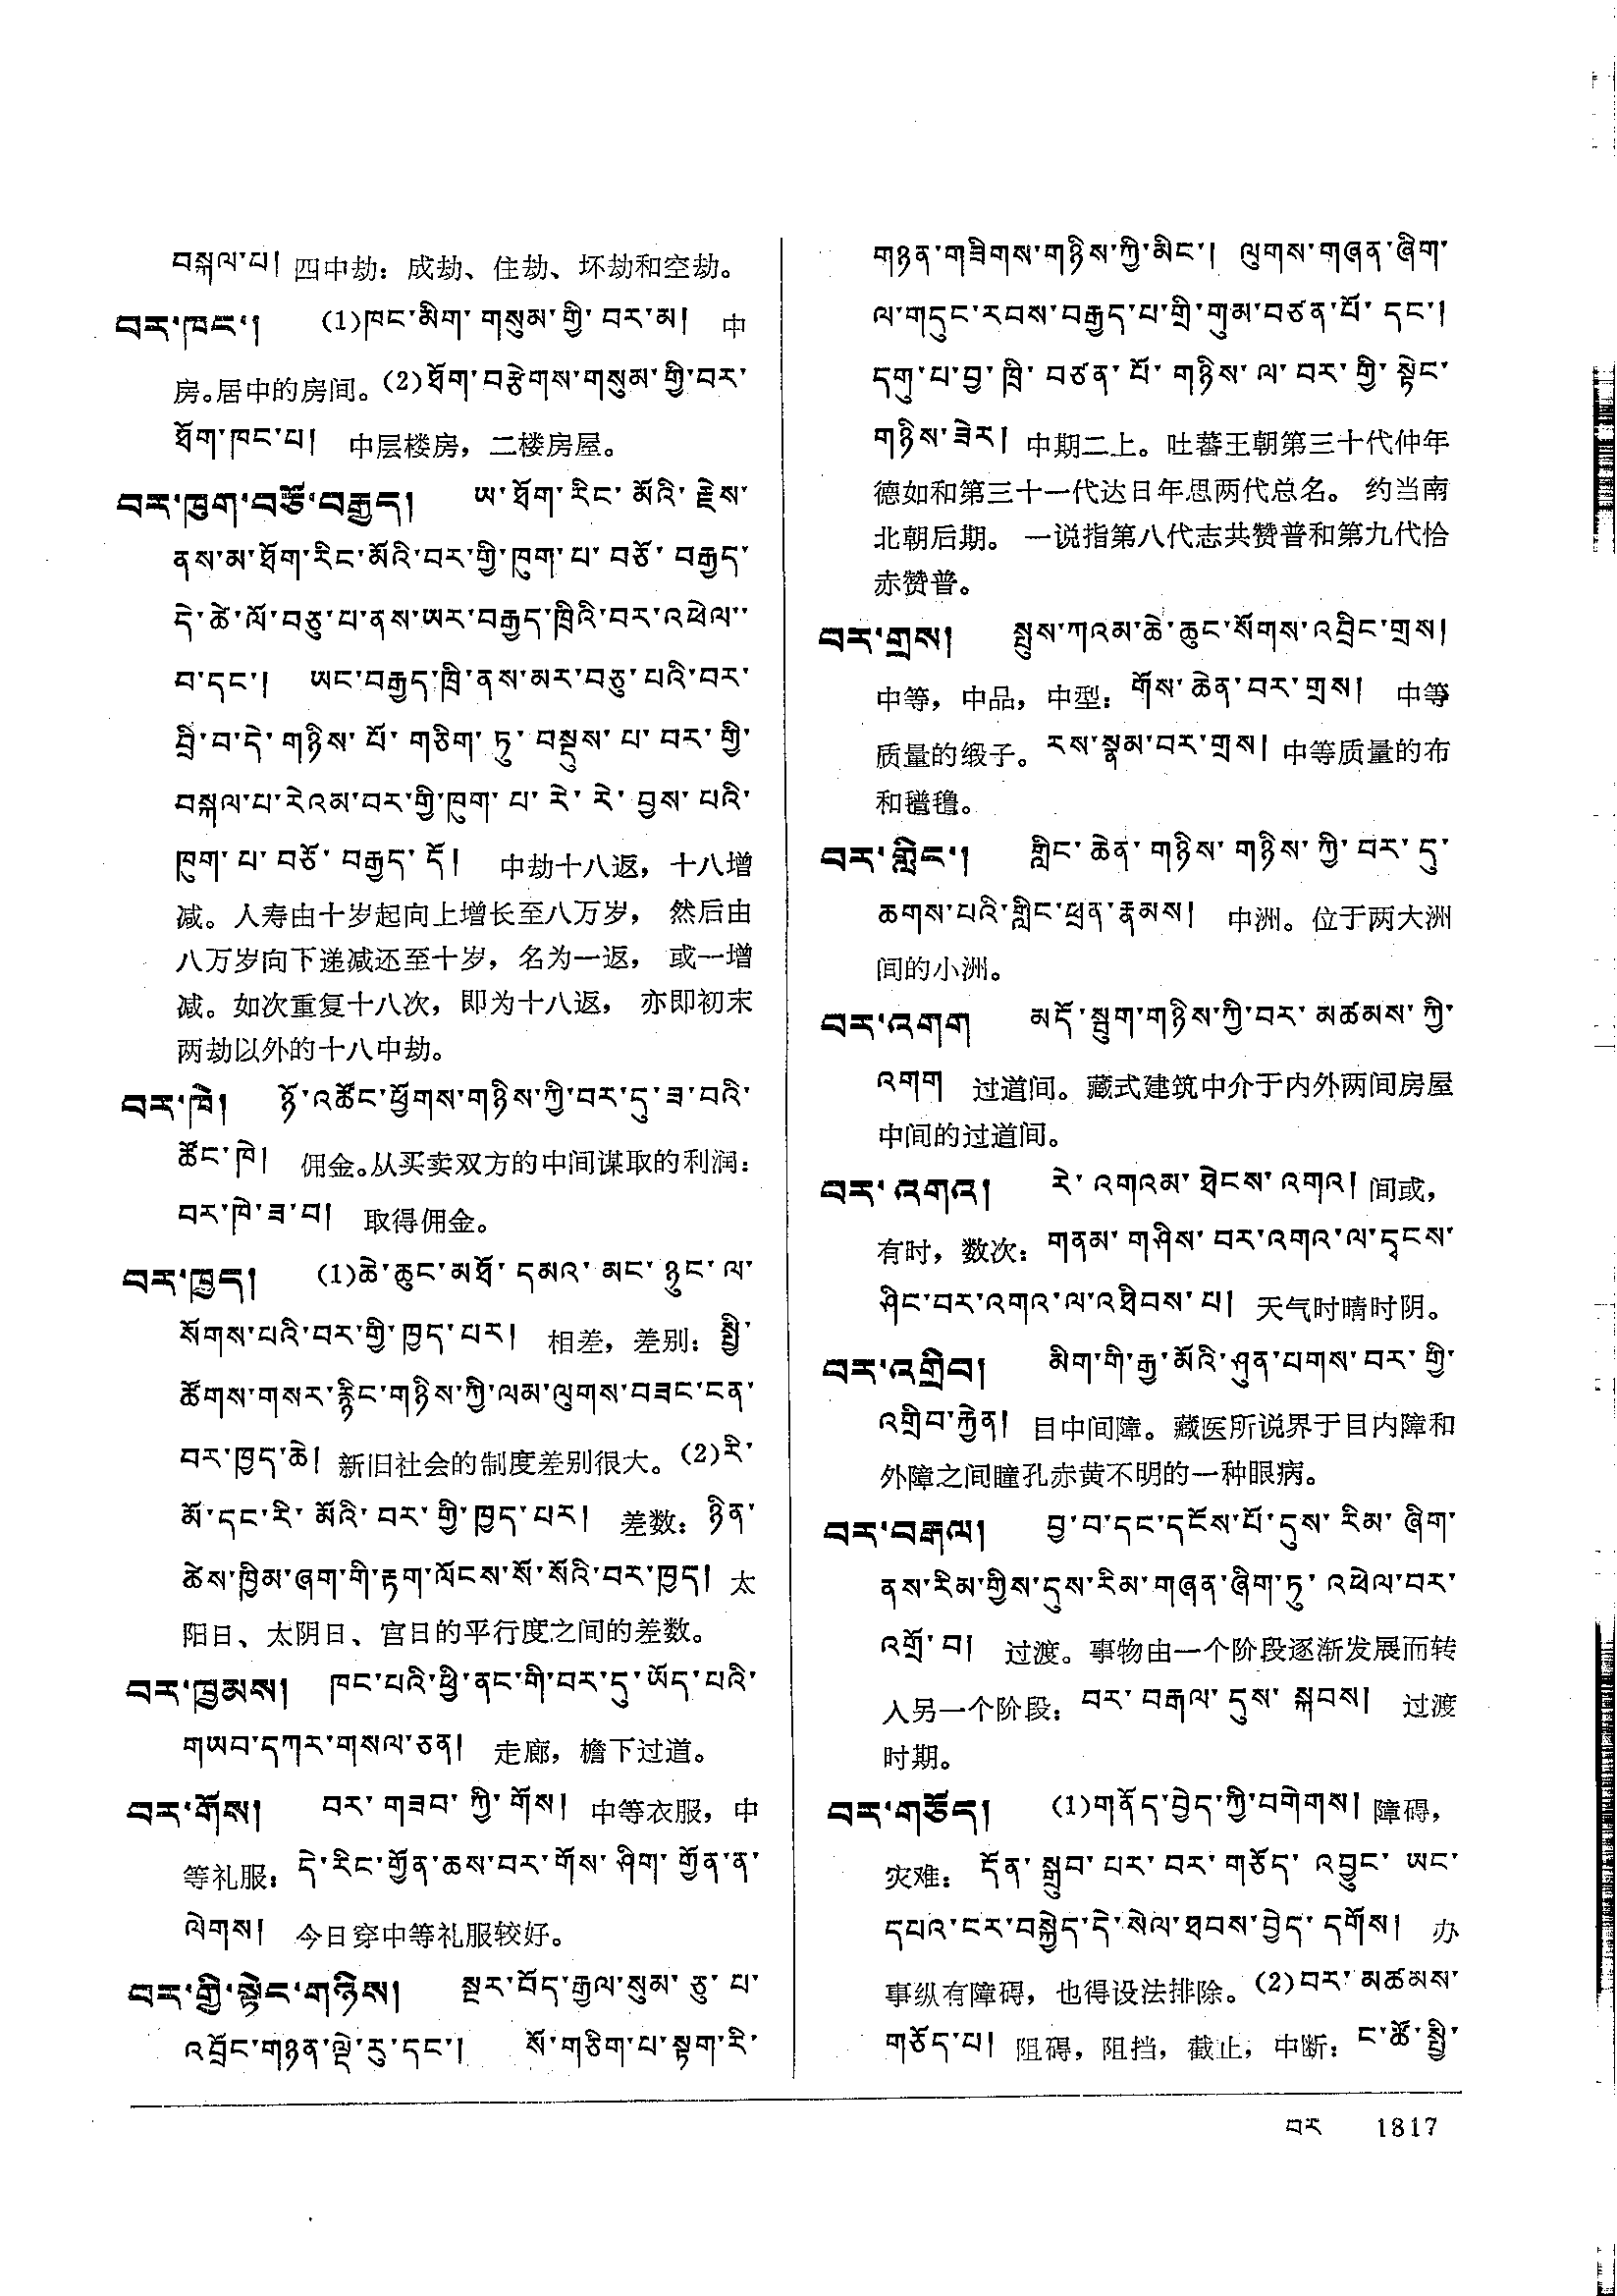 བསྐལ་པ། 四中劫：成劫、住劫、坏劫和空劫。
བར་ཁང་། (1)ཁང་མིག་གསུམ་གྱི་བར་མ། 中
房。居中的房间。(2)ཐོག་བརྩེགས་གསུམ་གྱི་བར་
ཐོག་ཁང་པ། 中层楼房，二楼房屋。
བར་ཁུག་བཅོ་བརྒྱད། ཨ་ཐོག་རིང་མོའི་རྗེས་
ནས་མ་ཐོག་རིང་མོའི་བར་གྱི་ཁུག་པ་བཅོ་བརྒྱད་
དེ་ཚེ་ལོ་བཅུ་པ་ནས་ཡར་བརྒྱད་ཁྲིའི་བར་འཕེལ་་
བ་དང་། ཡང་བརྒྱད་ཁྲི་ནས་མར་བཅུ་པའི་བར་
བྲི་བ་དེ་གཉིས་པོ་གཅིག་ཏུ་བསྡུས་པ་བར་གྱི་
བསྐལ་པ་རེའམ་བར་གྱི་ཁུག་པ་རེ་རེ་བྱས་པའི་
ཁུག་པ་བཅོ་བརྒྱད་དོ། 中劫十八返，十八增
减。人寿由十岁起向上增长至八万岁， 然后由
八万岁向下递减还至十岁，名为一返， 或一增
减。如次重复十八次，即为十八返， 亦即初末
两劫以外的十八中劫。
བར་ཁེ། ཉོ་འཚོང་ཕྱོགས་གཉིས་ཀྱི་བར་དུ་ཟ་བའི་
ཚོང་ཁེ། 佣金。从买卖双方的中间谋取的利润：
བར་ཁེ་ཟ་བ། 取得佣金。
བར་ཁྱད། (1)ཆེ་ཆུང་མཐོ་དམའ་མང་ཉུང་ལ་
སོགས་པའི་བར་གྱི་ཁྱད་པར། 相差，差别：སྤྱི་
ཚོགས་གསར་རྙིང་གཉིས་ཀྱི་ལམ་ལུགས་བཟང་ངན་
བར་ཁྱད་ཆེ། 新旧社会的制度差别很大。(2)རི་
མོ་དང་རི་མོའི་བར་གྱི་ཁྱད་པར། 差数：ཉིན་
ཚེས་ཁྱིམ་ཞག་གི་རྟག་ལོངས་སོ་སོའི་བར་ཁྱད། 太
阳日、太阴日、宫日的平行度之间的差数。
བར་ཁྱམས། ཁང་པའི་ཕྱི་ནང་གི་བར་དུ་ཡོད་པའི་
གཡབ་དཀར་གསལ་ཅན། 走廊，檐下过道。
བར་གོས། བར་གཟབ་ཀྱི་གོས། 中等衣服，中
等礼服：དེ་རིང་གྱོན་ཆས་བར་གོས་ཤིག་གྱོན་ན་
ལེགས། 今日穿中等礼服较好。
བར་གྱི་སྟེང་གཉིས། སྔར་བོད་རྒྱལ་སུམ་ཅུ་པ་
འབྲོང་གཉན་ལྡེ་རུ་དང་། སོ་གཅིག་པ་སྟག་རི་
གཉན་གཟིགས་གཉིས་ཀྱི་མིང་། ལུགས་གཞན་ཞིག་
ལ་གདུང་རབས་བརྒྱད་པ་གྲི་གུམ་བཙན་པོ་དང་།
དགུ་པ་བྱ་ཁྲི་བཙན་པོ་གཉིས་ལ་བར་གྱི་སྟེང་
གཉིས་ཟེར། 中期二上。吐蕃王朝第三十代仲年
德如和第三十一代达日年思两代总名。 约当南
北朝后期。 一说指第八代志共赞普和第九代恰
赤赞普。
བར་གྲས། སྤུས་ཀའམ་ཆེ་ཆུང་སོགས་འབྲིང་གྲས།
中等，中品，中型：གོས་ཆེན་བར་གྲས། 中等
质量的缎子。རས་སྣམ་བར་གྲས། 中等质量的布
和氆氇。
བར་གླིང་། གླིང་ཆེན་གཉིས་གཉིས་ཀྱི་བར་དུ་
ཆགས་པའི་གླིང་ཕྲན་རྣམས། 中洲。位于两大洲
间的小洲。
བར་འགག མདོ་སྦུག་གཉིས་ཀྱི་བར་མཚམས་ཀྱི་
འགག 过道间。藏式建筑中介于内外两间房屋
中间的过道间。
བར་འགའ། རེ་འགའམ་ཐེངས་འགའ། 间或，
有时，数次：གནམ་གཤིས་བར་འགའ་ལ་དྭངས་
ཤིང་བར་འགའ་ལ་འཐིབས་པ། 天气时晴时阴。
བར་འགྲིབ། མིག་གི་རྒྱ་མོའི་ཤུན་པགས་བར་གྱི་
འགྲིབ་རྐྱེན། 目中间障。藏医所说界于目内障和
外障之间瞳孔赤黄不明的一种眼病。
བར་བརྒལ། བྱ་བ་དང་དངོས་པོ་དུས་རིམ་ཞིག་
ནས་རིམ་གྱིས་དུས་རིམ་གཞན་ཞིག་ཏུ་འཕེལ་བར་
འགྲོ་བ། 过渡。事物由一个阶段逐渐发展而转
入另一个阶段：བར་བརྒལ་དུས་སྐབས། 过渡
时期。
བར་གཅོད། (1)གནོད་བྱེད་ཀྱི་བགེགས། 障碍，
灾难：དོན་སྒྲུབ་པར་བར་གཅོད་འབྱུང་ཡང་
དཔའ་ངར་བསྐྱེད་དེ་སེལ་ཐབས་བྱེད་དགོས། 办
事纵有障碍，也得设法排除。(2)བར་མཚམས་
གཅོད་པ། 阻碍，阻挡，截止，中断：ང་ཚོ་སྤྱི་
བར 1817